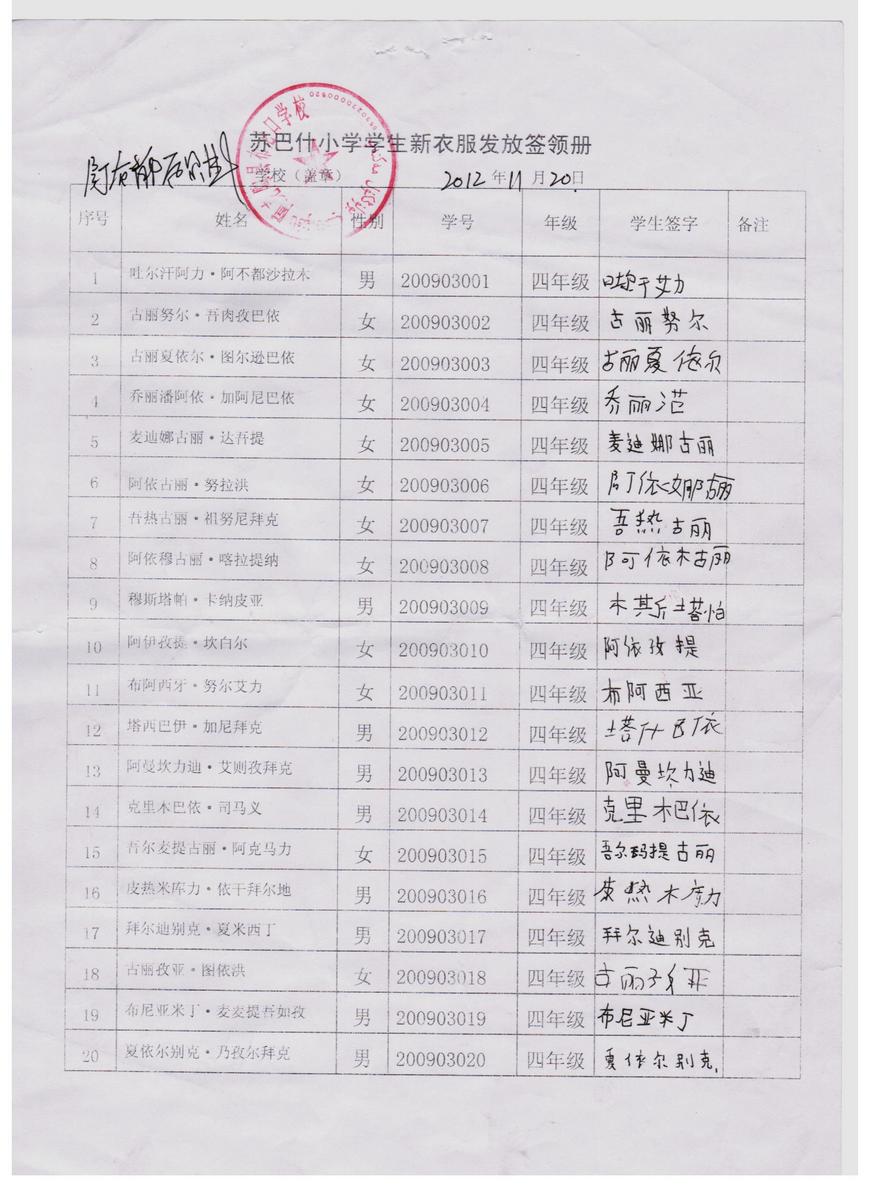 苏巴什小学学生新衣服发放签领册
学校（盖章） 2012年11月20日
序号 姓名 性别 学号 年级 学生签字 备注
1 吐尔汗阿力·阿不都沙拉木 男 200903001 四年级
2 古丽努尔·吾肉孜巴依 女 200903002 四年级 古丽努尔
3 古丽夏依尔·图尔逊巴依 女 200903003 四年级 古丽夏依尔
4 乔丽潘阿依·加阿尼巴依 女 200903004 四年级 乔丽范
5 麦迪娜古丽·达吾提 女 200903005 四年级 麦迪娜古丽
6 阿依古丽·努拉洪 女 200903006 四年级 阿依娜古丽
7 吾热古丽·祖努尼拜克 女 200903007 四年级 吾热古丽
8 阿依穆古丽·喀拉提纳 女 200903008 四年级 阿依木古丽
9 穆斯塔帕·卡纳皮亚 男 200903009 四年级 木斯塔怕
10 阿伊孜提·坎白尔 女 200903010 四年级 阿依孜提
11 布阿西牙·努尔艾力 女 200903011 四年级 布阿西亚
12 塔西巴伊·加尼拜克 男 200903012 四年级 塔什巴依
13 阿曼坎力迪·艾则孜拜克 男 200903013 四年级 阿曼坎力迪
14 克里木巴依·司马义 男 200903014 四年级 克里木巴依
15 吾尔麦提古丽·阿克马力 女 200903015 四年级 吾尔玛提古丽
16 皮热米库力·依干拜尔地 男 200903016 四年级 皮热木库力
17 拜尔迪别克·夏米西丁 男 200903017 四年级 拜尔迪别克
18 古丽孜亚·图依洪 女 200903018 四年级 古丽孜亚
19 布尼亚米丁·麦麦提吾如孜 男 200903019 四年级 布尼亚米丁
20 夏依尔别克·乃孜尔拜克 男 200903020 四年级 夏依尔别克